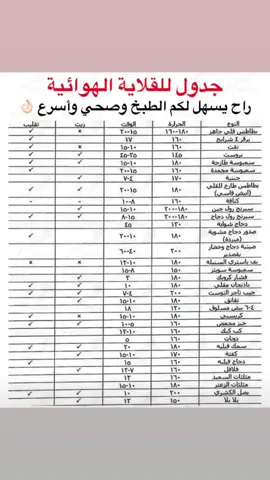 جدول للقلاية الهوائية
راح يسهل لكم الطبخ وصحي وأسرع 👌🏻
النوع الحرارة الوقت زيت تقليب
بطاطس قلي جاهز ١٨٠-١٦٠ ١٥-٢٠ × ✓
برقر ٤ شرايح ١٦٠ ١٧ ✓
نقت ١٦٠ ١٠-١٥ × ✓
بروست ١٤٥ ٢٥-٤٥ ✓ ✓
سمبوسة طازجة ١٨٠ ١٠-١٥ ✓ ✓
سمبوسة مجمدة ١٦٠ ١٥-٢٠ ✓
جبنية ١٧٠ ٤-٧ ✓
بطاطس طازج للقلي ١٨٠ ١٥-٢٠ ✓ ✓
كنافة ١٦٠ ٨-١٠ - -
سبرنج رول جبن ١٨٠-٢٠٠ ١٠-١٥ ✓
سبرنج رول دجاج ١٨٠-٢٠٠ ٨-١٥ ✓ ✓
دجاج شواية ١٢٠ ٤٥
صدور دجاج مشوية ١٨٠ ١٠-٢٠ ✓
صينية دجاج وخضار بقصدير ٢٠٠ ٤٠-٦٠
بف باستري السنبلة ١٨٠ ١٠-١٢ × ×
سمبوسة سويتز ١٥٠ ٨-١٥
فشار كرونك ١٨٠ ٣ ✓
باذنجان مقلي ١٨٠ ١٠ ✓ ✓
جيب تاجر التوست ٢٠٠ ٤-٧ ✓ ✓
نقانق ١٨٠ ١٠-١٥ ✓
٤-٦ بيض مسلوق ١٢٠ ١٨
كريسبي ١٨٠ ١٠-١٥ × ✓
خبز محمص ١٦٠ ٥-١٠ ✓ ✓
كب كيك ١٦٠ ١٠-١٢
دونات ١٦٠ ٥
سمك فيليه ١٨٠ ٢٠ ✓ ✓
كفتة ١٧٠ ١٠-١٥ ✓
دجاج فيليه ١٦٠ ١٥ ✓
فلافل ١٦٠ ٧-١٢ ✓
مثلثات السميد ١٦٠ ١٢
مثلثات الزعتر ١٨٠ ١٠-١٥
بصل الكشري ٢٠٠ ١٠ ✓ ✓
بلا بلا ١٥٠ ١٣ ✓